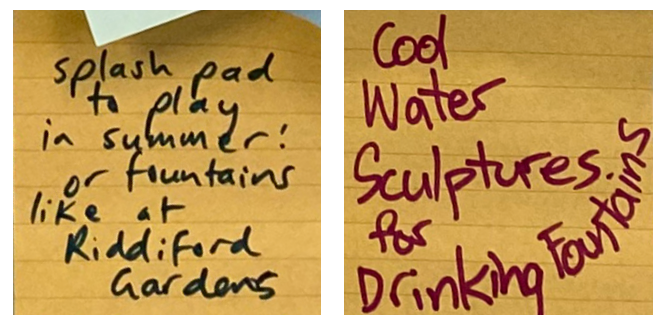 splash pad
to play
in summer!
or fountains
like at
Riddiford
Gardens
Cool
Water
Sculptures.
for
Drinking Fountains